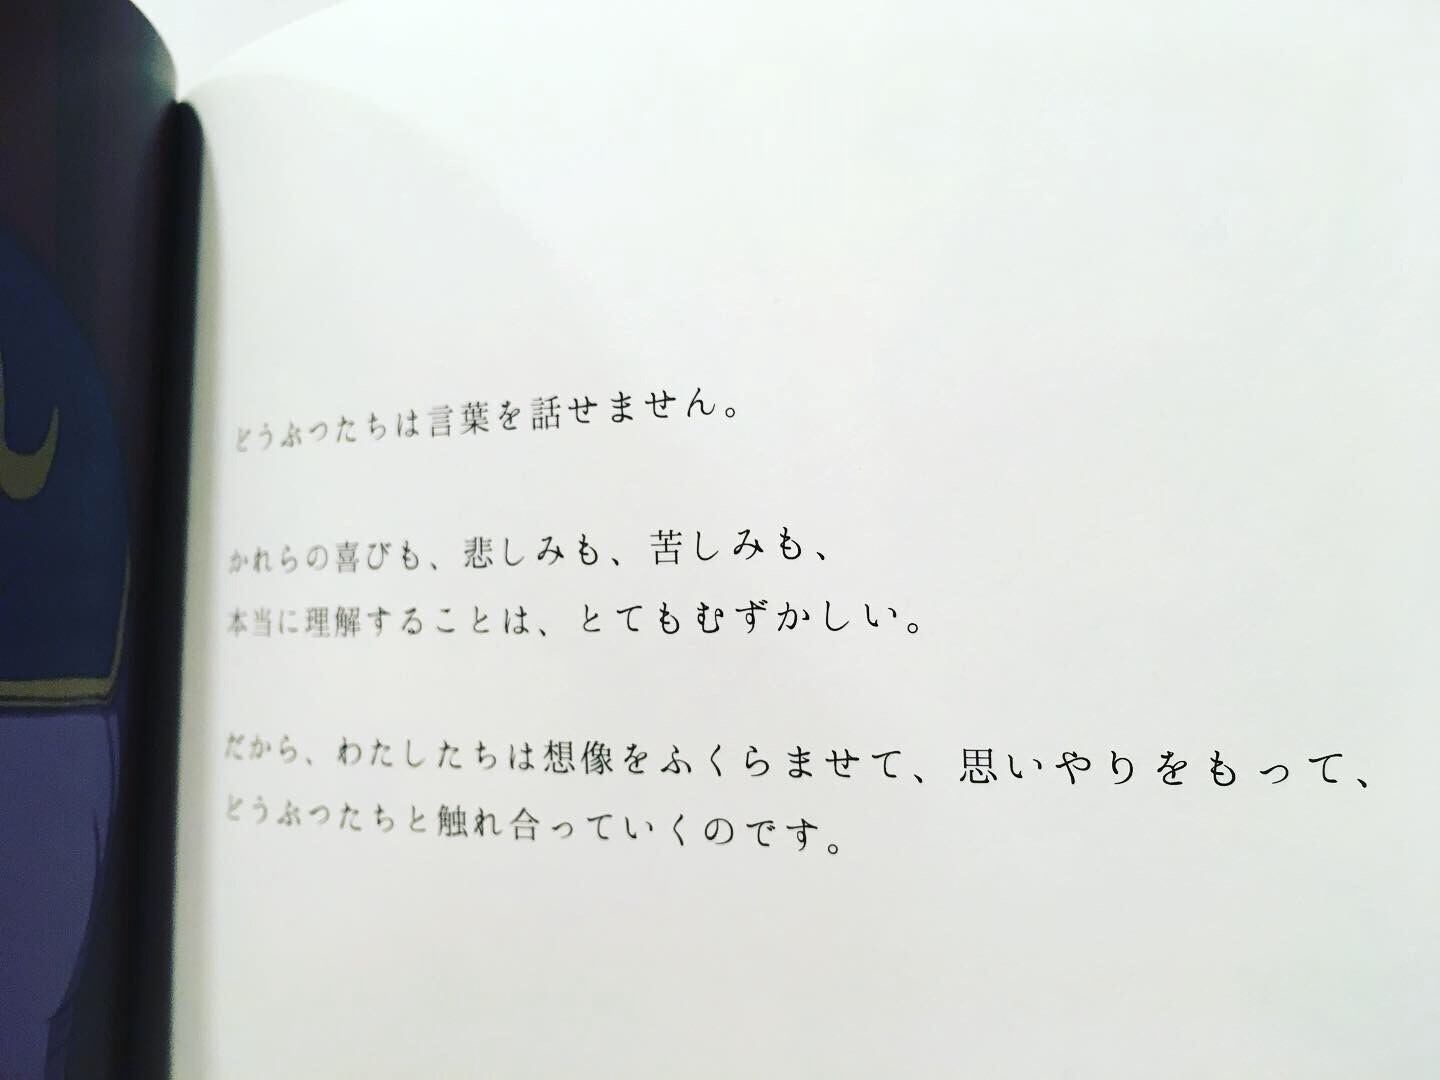 どうぶつたちは言葉を話せません。
かれらの喜びも、悲しみも、苦しみも、
本当に理解することは、とてもむずかしい。
だから、わたしたちは想像をふくらませて、思いやりをもって、
どうぶつたちと触れ合っていくのです。